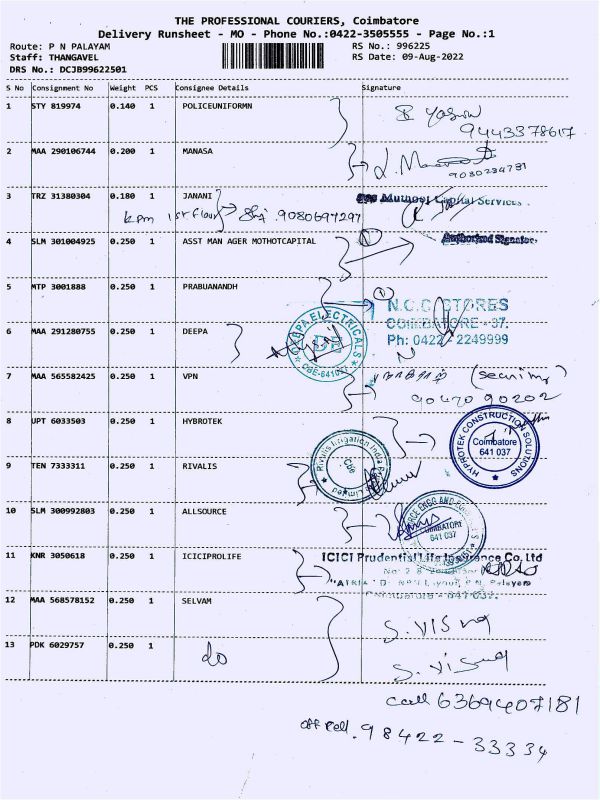 THE PROFESSIONAL COURIERS, Coimbatore
Delivery Runsheet - MO - Phone No.:0422-3505555 - Page No.:1
Route: P N PALAYAM RS No.: 996225
Staff: THANGAVEL RS Date: 09-Aug-2022
DRS No.: DCJB99622501
S No Consignment No Weight PCS Consignee Details Signature
1 STY 819974 0.140 1 POLICEUNIFORMN
9443378617
2 MAA 290106744 0.200 1 MANASA
9080284781
3 TRZ 31380304 0.180 1 JANANI Muthoot Capital Services
kpm 1st floor 9080697297
4 SLM 301004925 0.250 1 ASST MAN AGER MOTHOTCAPITAL Authorised Signator
5 MTP 3001888 0.250 1 PRABUANANDH
N.C.C. STORES
COIMBATORE - 37.
6 MAA 291280755 0.250 1 DEEPA Ph: 0422 - 2249999
ELECTRICALS
CBE-641037
7 MAA 565582425 0.250 1 VPN
90470 90202
8 UPT 6033503 0.250 1 HYBROTEK
HYPROTEK CONSTRUCTION SOLUTIONS
Coimbatore
641 037
Rivalis Irrigation India Limited
Cbe
9 TEN 7333311 0.250 1 RIVALIS
10 SLM 300992803 0.250 1 ALLSOURCE
COIMBATORE
641 037
11 KNR 3050618 0.250 1 ICICIPROLIFE ICICI Prudential Life Insurance Co. Ltd
12 MAA 568578152 0.250 1 SELVAM
13 PDK 6029757 0.250 1 do
call 6369407181
off cell. 98422 - 33334